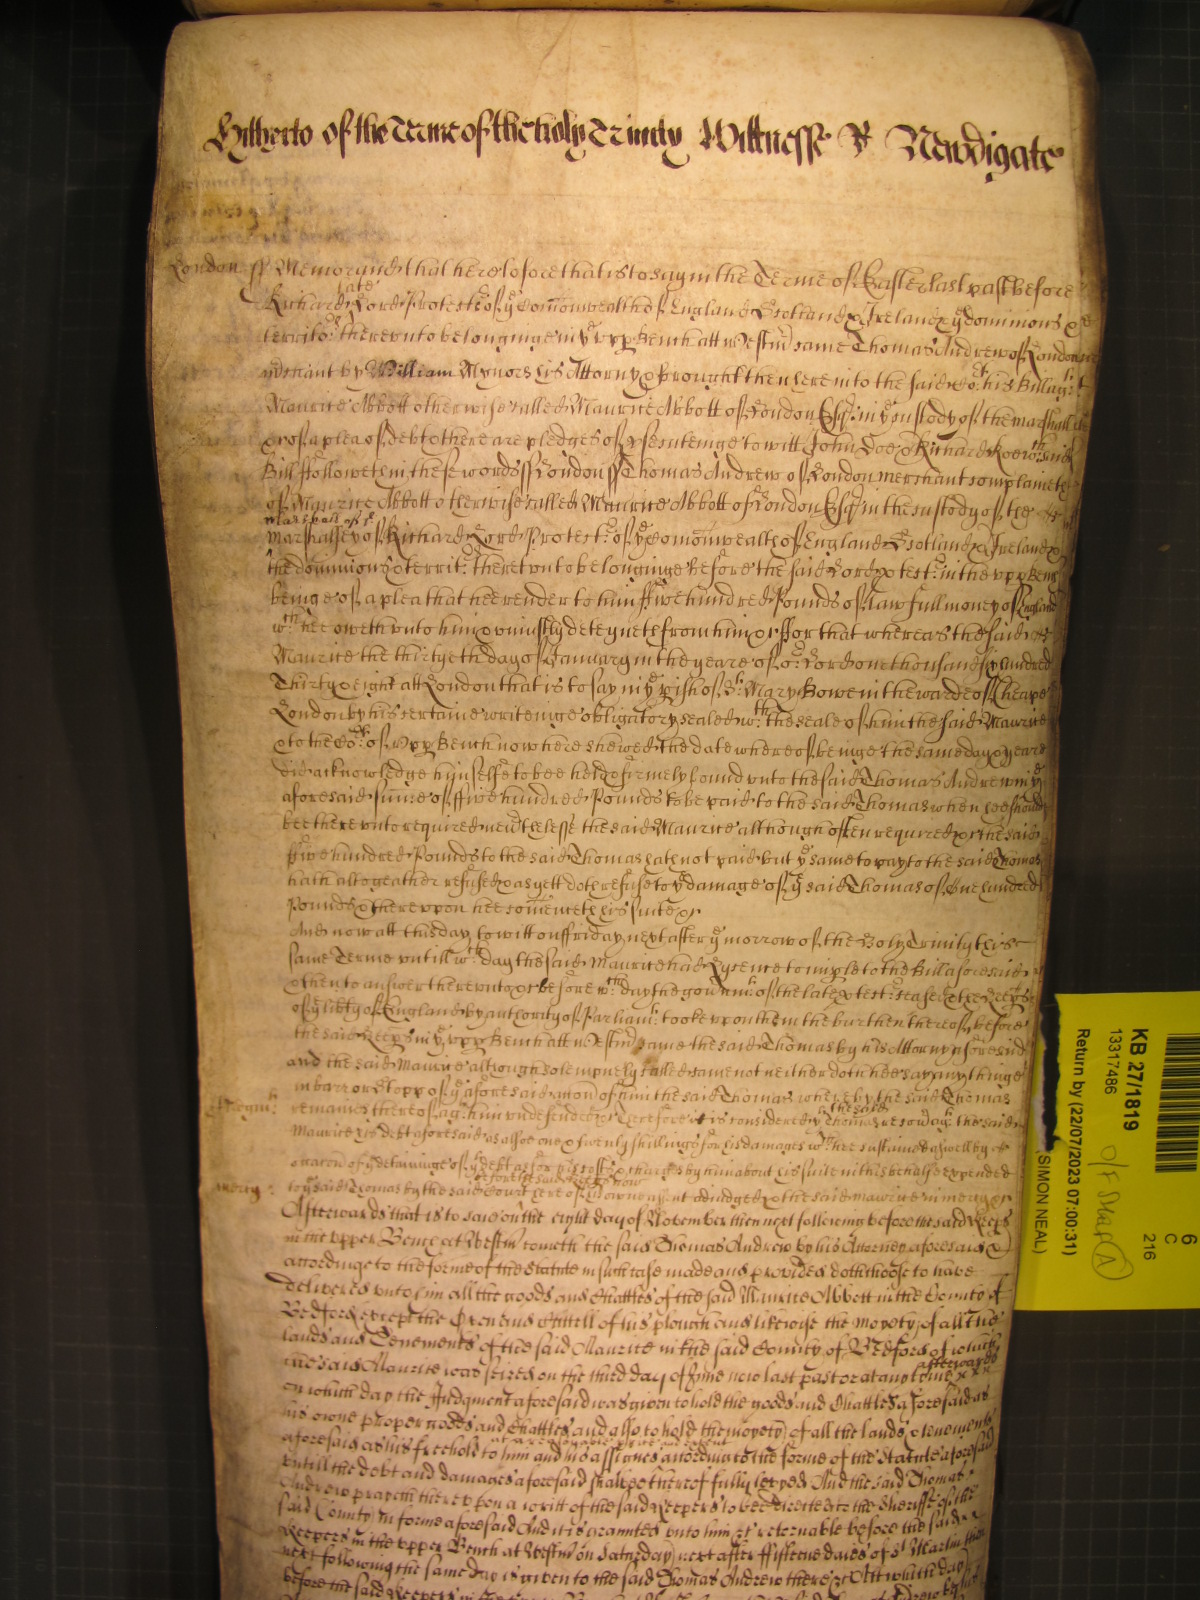 Hitherto of the Terme of the holy Trinity Wittnesse R Newdigate
London ss Memorand that heretofore that is to say in the Terme of Easter last past before
late
Richard Lord Protect:or of ye Comonwealth of England Scotland & Ireland & ye dominions &
territo: therevnto belonginge in ye vpp Bench att Westm came Thomas Andrew of London
mchant by William Mynors his Attorny & brought then here into the said Co:rt his Bill ag:t
Maurice Abbott otherwise called Maurice Abbott of London Esq:r in ye custody of the marshall
&c of a plea of debt & there are pledges of p'secuteinge to witt John Doe & Richard Roe w:ch said
Bill followeth in these words ss London ss Thomas Andrew of London merchant complaineth
of Maurice Abbott otherwise called Maurice Abbott of London Esq:r in the custody of the
marshall of ye
Marshalsey of Richard Lord Protect:or of ye Comonwealth of England Scotland & Ireland &
the dominions & territ: therevnto belonginge before the said Lord p'tect:or in the vpp Bench
beinge of a plea that hee render to him ffive hundred Pounds of lawfull money of England
w:ch hee oweth vnto him & vniustly deteyneth from him &c ffor that whereas the said
Maurice the thirtyeth day of January in the yeare of o:r Lord one thousand six hundred
Thirty & eight att London that is to say in ye p'ish of S:t Mary Bowe in the warde of Cheape
London by his certaine writeinge obligatory sealed w:th the seale of him the said Maurice
& to the Co:rt of Vpp Bench now here shewed the date whereof beinge the same day & yeare
did acknowledge himselfe to bee held & firmely bound vnto the said Thomas Andrew in ye
aforesaid sume of ffive hundred Pounds to be paid to the said Thomas when hee should
bee therevnto required nevthelesse the said Maurice although often required &c the said
ffive hundred Pounds to the said Thomas hath not paid but ye same to pay to the said Thomas
hath altogeather refused & as yett doth refuse to ye damage of ye said Thomas of One hundred
Pounds & therevpon hee comeneth his suite &c
And now att this day to witt on ffriday next after ye morrow of the Holy Trinity this
same Terme vntill w:ch day the said Maurice had Lycence to imple to the Bill aforesaid
& then to answer therevnto &c before w:ch day the gou'nm:t of the late p'tect:or ceased & the Keeps
of ye lib'ty of England by authority of Parliam:t tooke vpon them the burthen thereof before
the said Keeps in ye vpp Bench att Westm came the said Thomas by his Attorny aforesaid
and the said Maurice although solempnely called came not neither doth hee say any thinge
in barr or stopp of ye aforesaid accon of him the said Thomas whereby the said Thomas
remaines thereof ag:t him vndefended &c Therefore it is considered y:t the said Thomas recov ag:t the said
Maurice his debt aforesaid as alsoe one & twenty shillings for his damages w:ch hee sustained aswell by
occacon of ye deteininge of ye debt as for his costs & charges by him about his suite in this behalfe expended
before the said Keeps now
to ye said Thomas by the said Court here of his owne assent adiudged & the said Maurice in mercy &c
mercy:
Afterwards that is to saie on the eight day of November then next following before the said Keeps
in the vpper Bench at Westm cometh the said Thomas Andrew by his Attorney aforesaid &
accordinge to the forme of the Statute in such case made and provided doth choose to have
delivered vnto him all the goods and Chattles of the said Maurice Abbott in the County of
Bedford except the Oxen and Cattell of his plough and likewise the moyety of all the
lands and Tenements of the said Maurice in the said County of Bedford of which
afterwards
the said Maurice was seized on the third day of June now last past or at any time
on which day the Judgment aforesaid was given to hold the goods and Chattles aforesaid as
his owne proper goods and Chattles and also to hold the moyety of all the lands & tenements
at a reasonable price and extent
aforesaid as his freehold to him and his assignes according to the forme of the Statute aforesaid
vntill the debt and damages aforesaid shall bee thereof fully levyed And the said Thomas
Andrew prayeth therevpon a writt of the said Keepers to bee directed to the Sheriffe of the
said County in forme aforesaid And it is graunted vnto him &c retornable before the said
Keepers in the vpper Bench at Westm on Saturday next after ffifteene daies of S:t Martin then
next following the same day is given to the said Thomas Andrew there &c Att which day
before the said Keepers
KB 27/1819
13317486
Return by (22/07/2023 07:00:31)
SIMON NEAL)
6
C
216